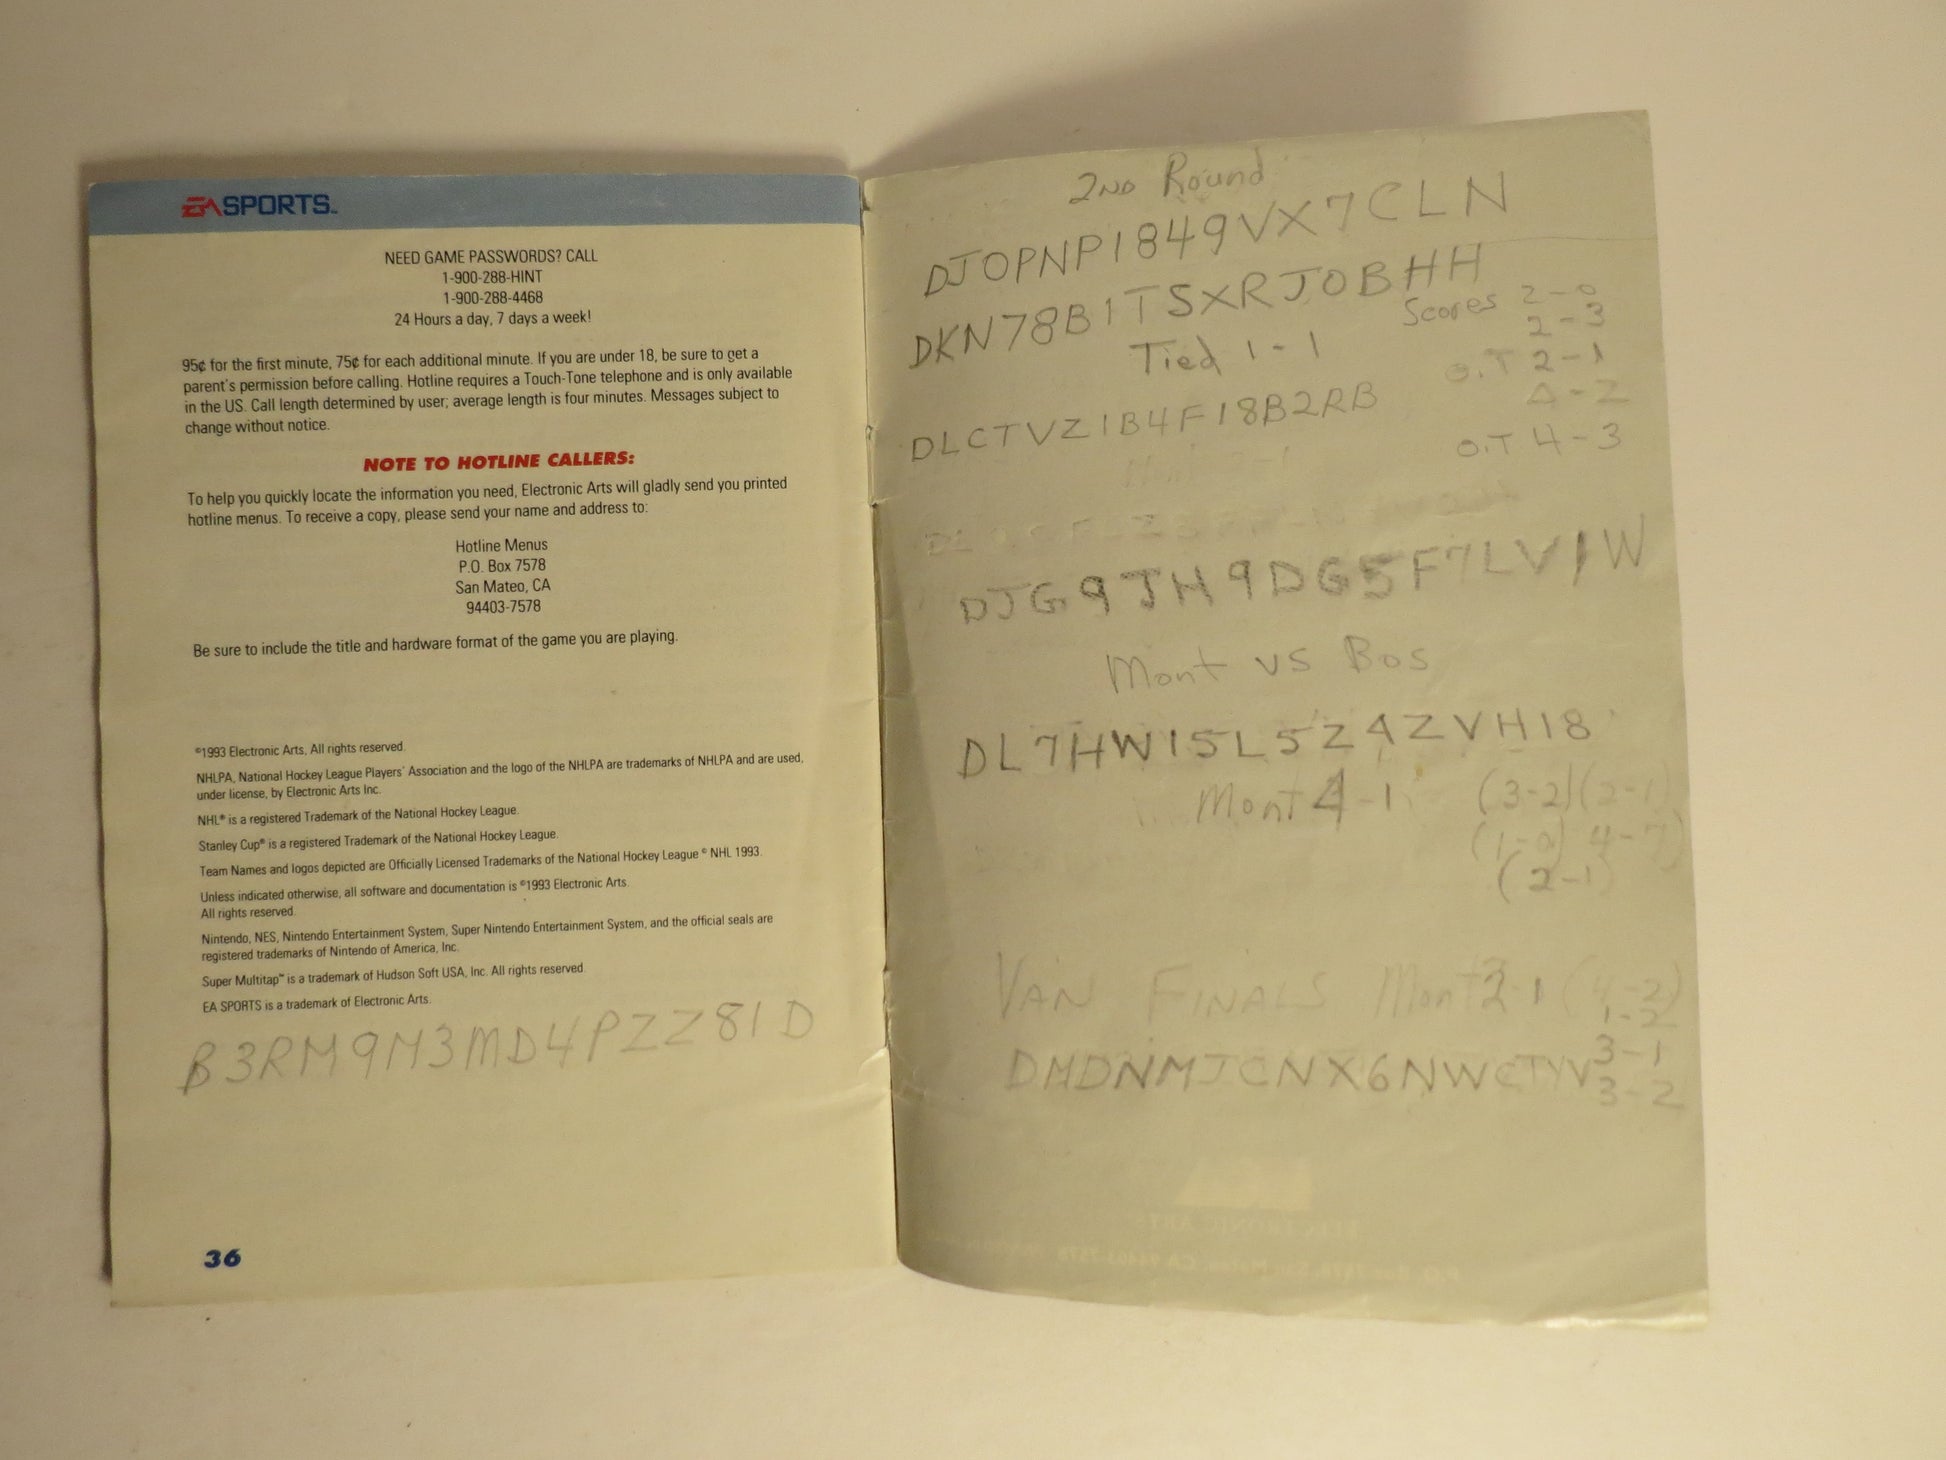 EA SPORTS™
NEED GAME PASSWORDS? CALL
1-900-288-HINT
1-900-288-4468
24 Hours a day, 7 days a week!
95¢ for the first minute, 75¢ for each additional minute. If you are under 18, be sure to get a
parent's permission before calling. Hotline requires a Touch-Tone telephone and is only available
in the US. Call length determined by user; average length is four minutes. Messages subject to
change without notice.
NOTE TO HOTLINE CALLERS:
To help you quickly locate the information you need, Electronic Arts will gladly send you printed
hotline menus. To receive a copy, please send your name and address to:
Hotline Menus
P.O. Box 7578
San Mateo, CA
94403-7578
Be sure to include the title and hardware format of the game you are playing.
©1993 Electronic Arts. All rights reserved.
NHLPA, National Hockey League Players' Association and the logo of the NHLPA are trademarks of NHLPA and are used,
under license, by Electronic Arts Inc.
NHL® is a registered Trademark of the National Hockey League.
Stanley Cup® is a registered Trademark of the National Hockey League.
Team Names and logos depicted are Officially Licensed Trademarks of the National Hockey League © NHL 1993.
Unless indicated otherwise, all software and documentation is ©1993 Electronic Arts.
All rights reserved.
Nintendo, NES, Nintendo Entertainment System, Super Nintendo Entertainment System, and the official seals are
registered trademarks of Nintendo of America, Inc.
Super Multitap™ is a trademark of Hudson Soft USA, Inc. All rights reserved.
EA SPORTS is a trademark of Electronic Arts.
B3RM9M3MD4PZZ81D
36
2ND Round
DJOPNP1849VX7CLN
DKN78B1TSXRJOBHH
Tied 1-1
Scores 2-0
2-3
O.T 2-1
4-2
O.T 4-3
DLCTVZ1B4F18B2RB
DJG9JH9DG5F7LV1W
Mont vs Bos
DL7HW15L5Z4ZVH18
Mont 4-1
(3-2)(2-1)
(1-0) 4-7)
(2-1)
VAN FINALS Mont (4-2)
1-2
3-1
3-2
ELECTRONIC ARTS